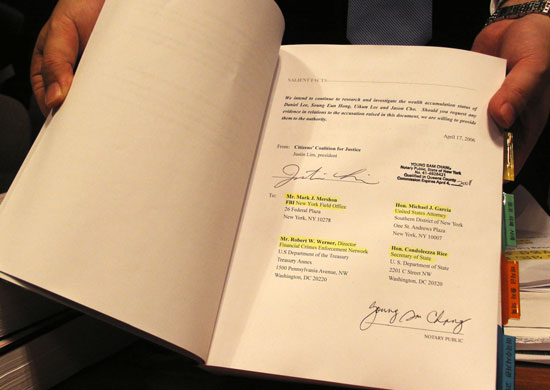 SALIENT FACTS
We intend to continue to research and investigate the wealth accumulation status of
Daniel Lee, Seung Eun Hong, Uikun Lee and Jason Cho. Should you request any
evidence in relations to the accusation raised in this document, we are willing to provide
them to the authority.
April 17, 2006
From: Citizens' Coalition for Justice
Justin Lim, president
Justin Lim
YOUNG SAM CHANG
Notary Public, State of New York
Qualified in Queens County
Commission Expires April
To: Mr. Mark J. Mershon
FBI New York Field Office
26 Federal Plaza
New York, NY 10278
Hon. Michael J. Garcia
United States Attorney
Southern District of New York
One St. Andrews Plaza
New York, NY 10007
Mr. Robert W. Werner, Director
Financial Crimes Enforcement Network
U.S Department of the Treasury
Treasury Annex
1500 Pennsylvania Avenue, NW
Washington, DC 20220
Hon. Condoleezza Rice
Secretary of State
U. S. Department of State
2201 C Street NW
Washington, DC 20520
Young Sam Chang
NOTARY PUBLIC